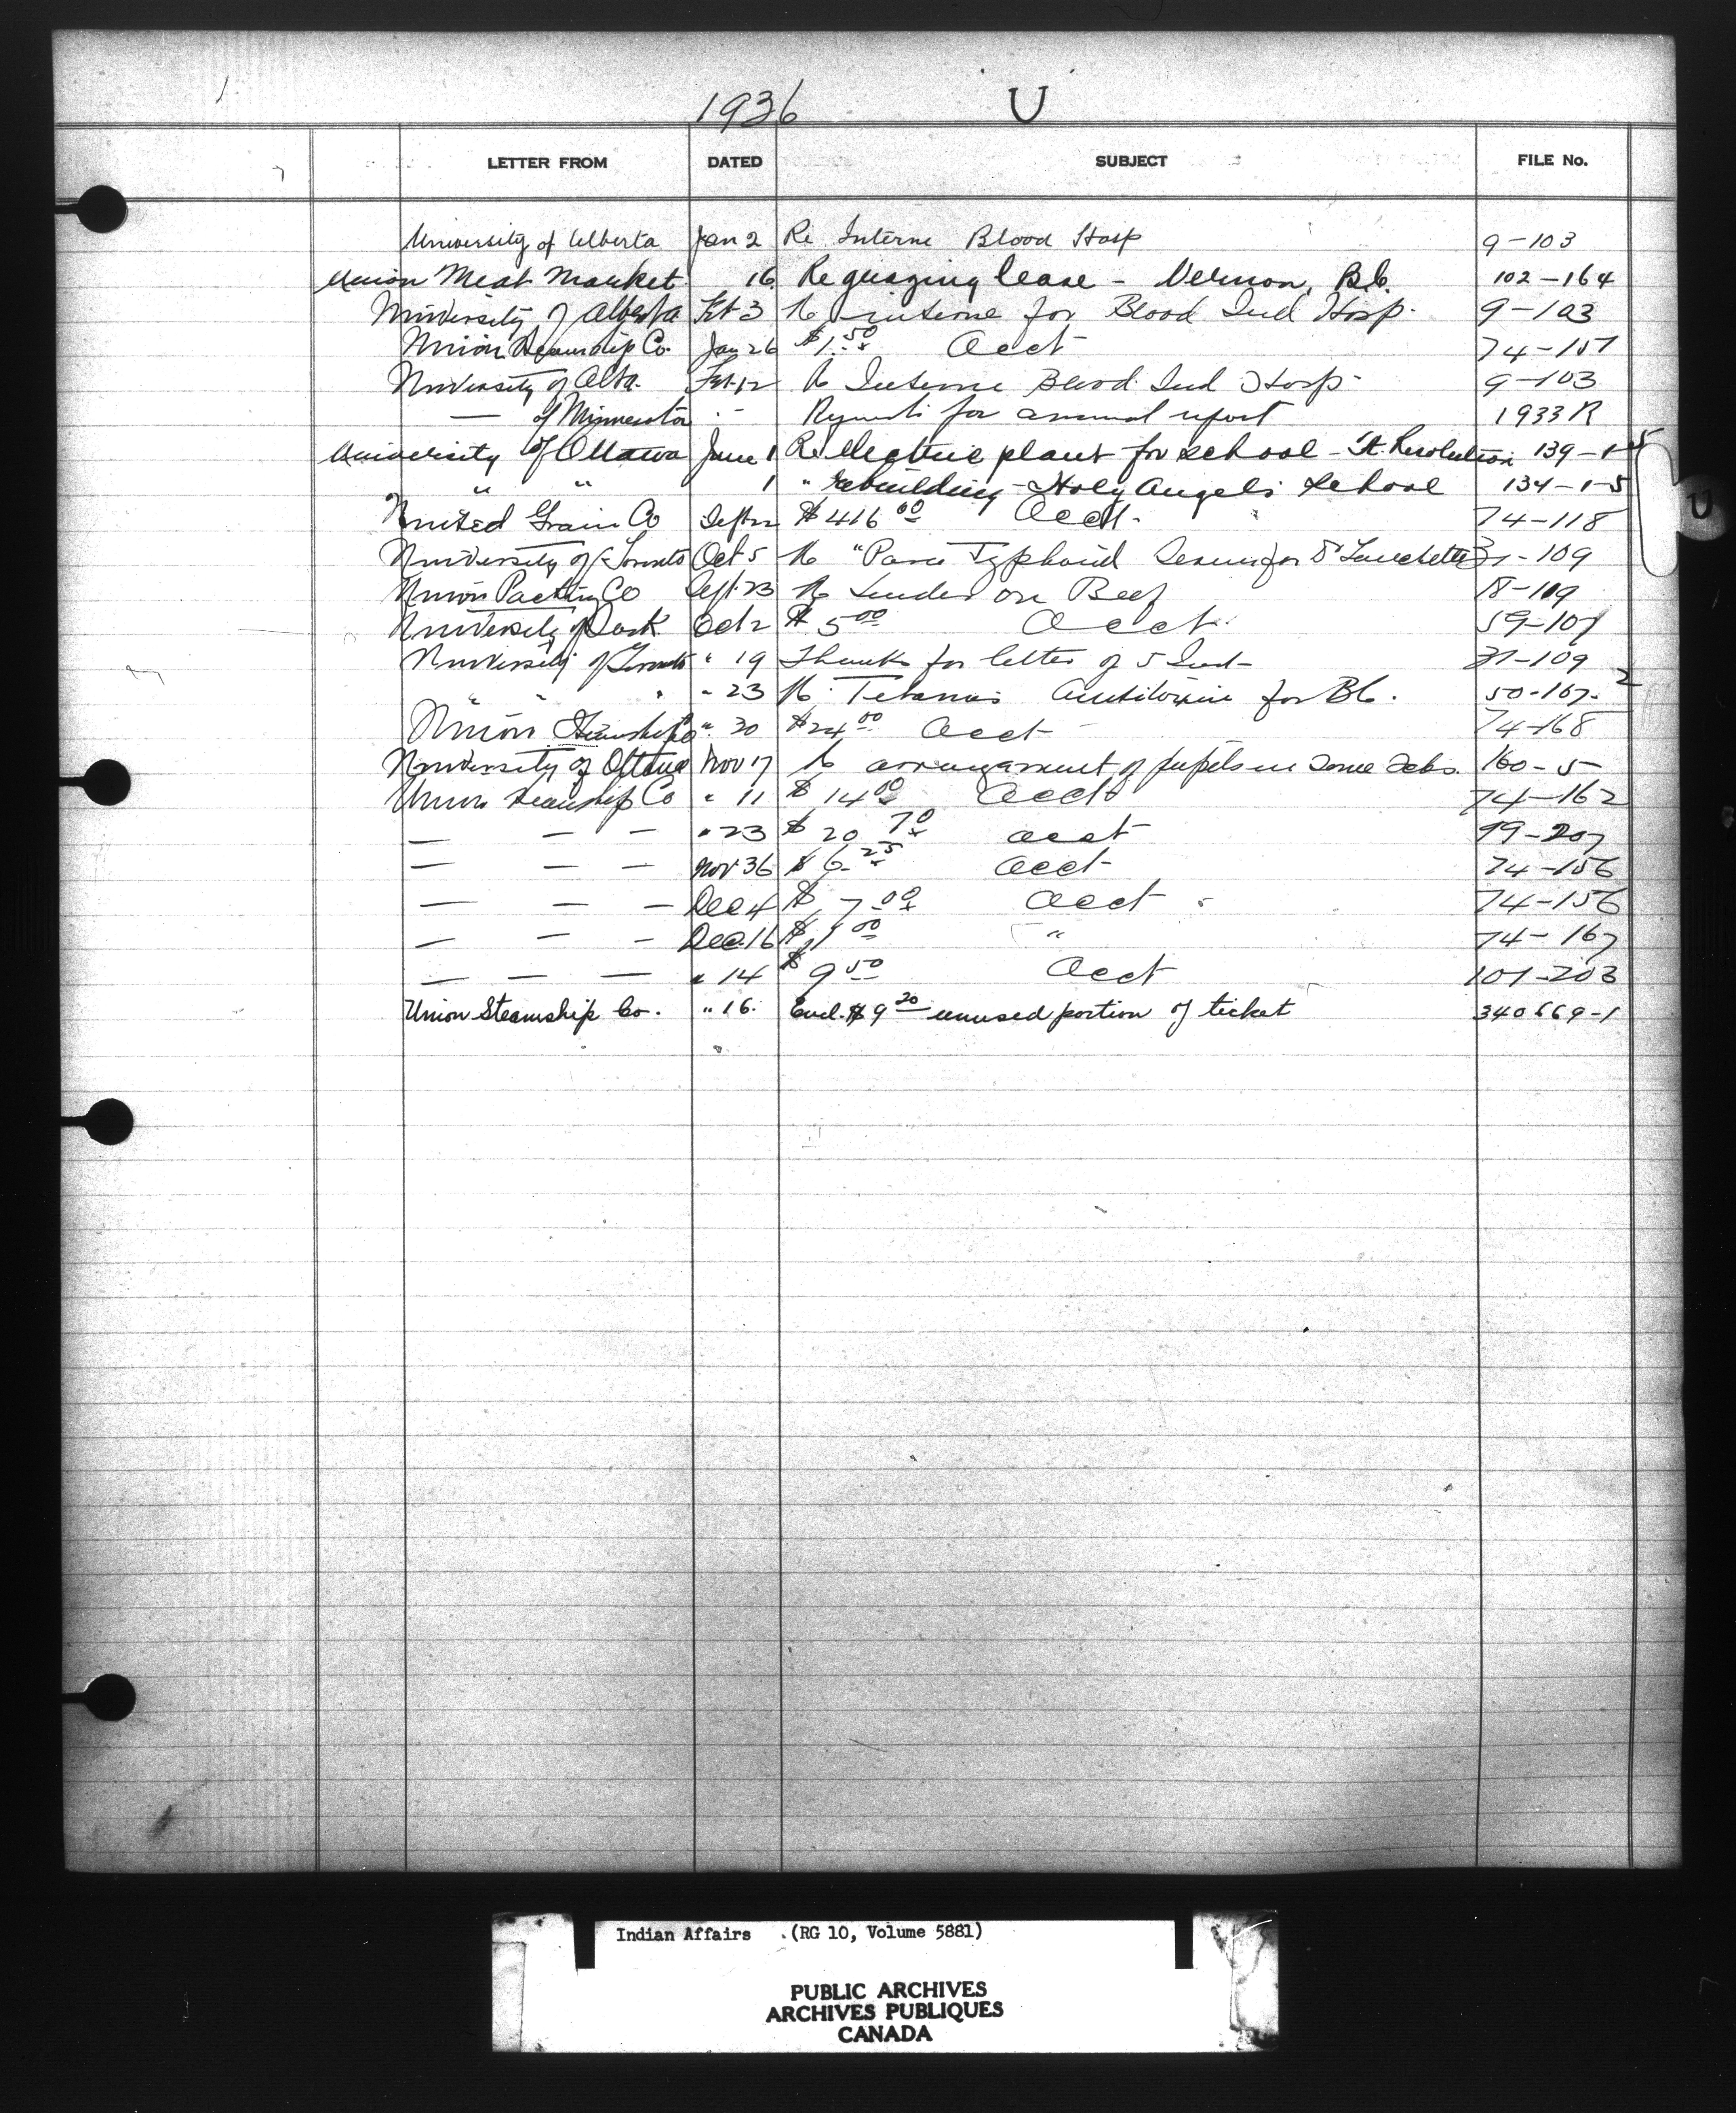 1936 U
LETTER FROM DATED SUBJECT FILE No.
University of Alberta Jan 2 Re Interne Blood Hosp 9-103
Union Meat Market 16 Re grazing lease - Vernon, B.C. 102-164
University of Alberta Feb 3 Re interne for Blood Ind Hosp. 9-103
Union Steamship Co. Jan 26 $1.50 Acct 74-157
University of Alta. Feb 12 Re Interne Blood Ind Hosp 9-103
— of Minnesota " - Requests for annual report 1933 R
University of Ottawa June 1 Re electric plant for school - Ft. Resolution 139-1-5
" " 1 " rebuilding - Holy Angels school 134-1-5
United Grain Co Sept 22 $416 00 Acct. 74-118
University of Toronto Oct 5 Re "Para Typhoid Serum for Dr 31-109
Union Packing Co Sept. 23 Re Tender on Beef 18-109
University of Sask. Oct 2 $5 00 Acct. 59-107
University of Toronto " 19 Thanks for letter of 5 Inst 31-109
" " " " 23 Re Tetanus Antitoxine for BC. 50-167-2
Union Steamship Co " 30 $24 00 Acct 74-168
University of Ottawa Nov 17 Re arrangement of pupils in 160-5
Union Steamship Co " 11 $14 00 Acct 74-162
— — — " 23 $20 70 acct 99-207
— — — Nov 36 $6 25 acct 74-156
— — — Dec 4 $7 00 acct 74-156
— — — Dec. 16 $ 00 " 74-167
— — — " 14 $9 50 Acct 107-203
Union Steamship Co. " 16. Encl. $9 20 unused portion of ticket 340669-1
U
Indian Affairs (RG 10, Volume 5881)
PUBLIC ARCHIVES
ARCHIVES PUBLIQUES
CANADA